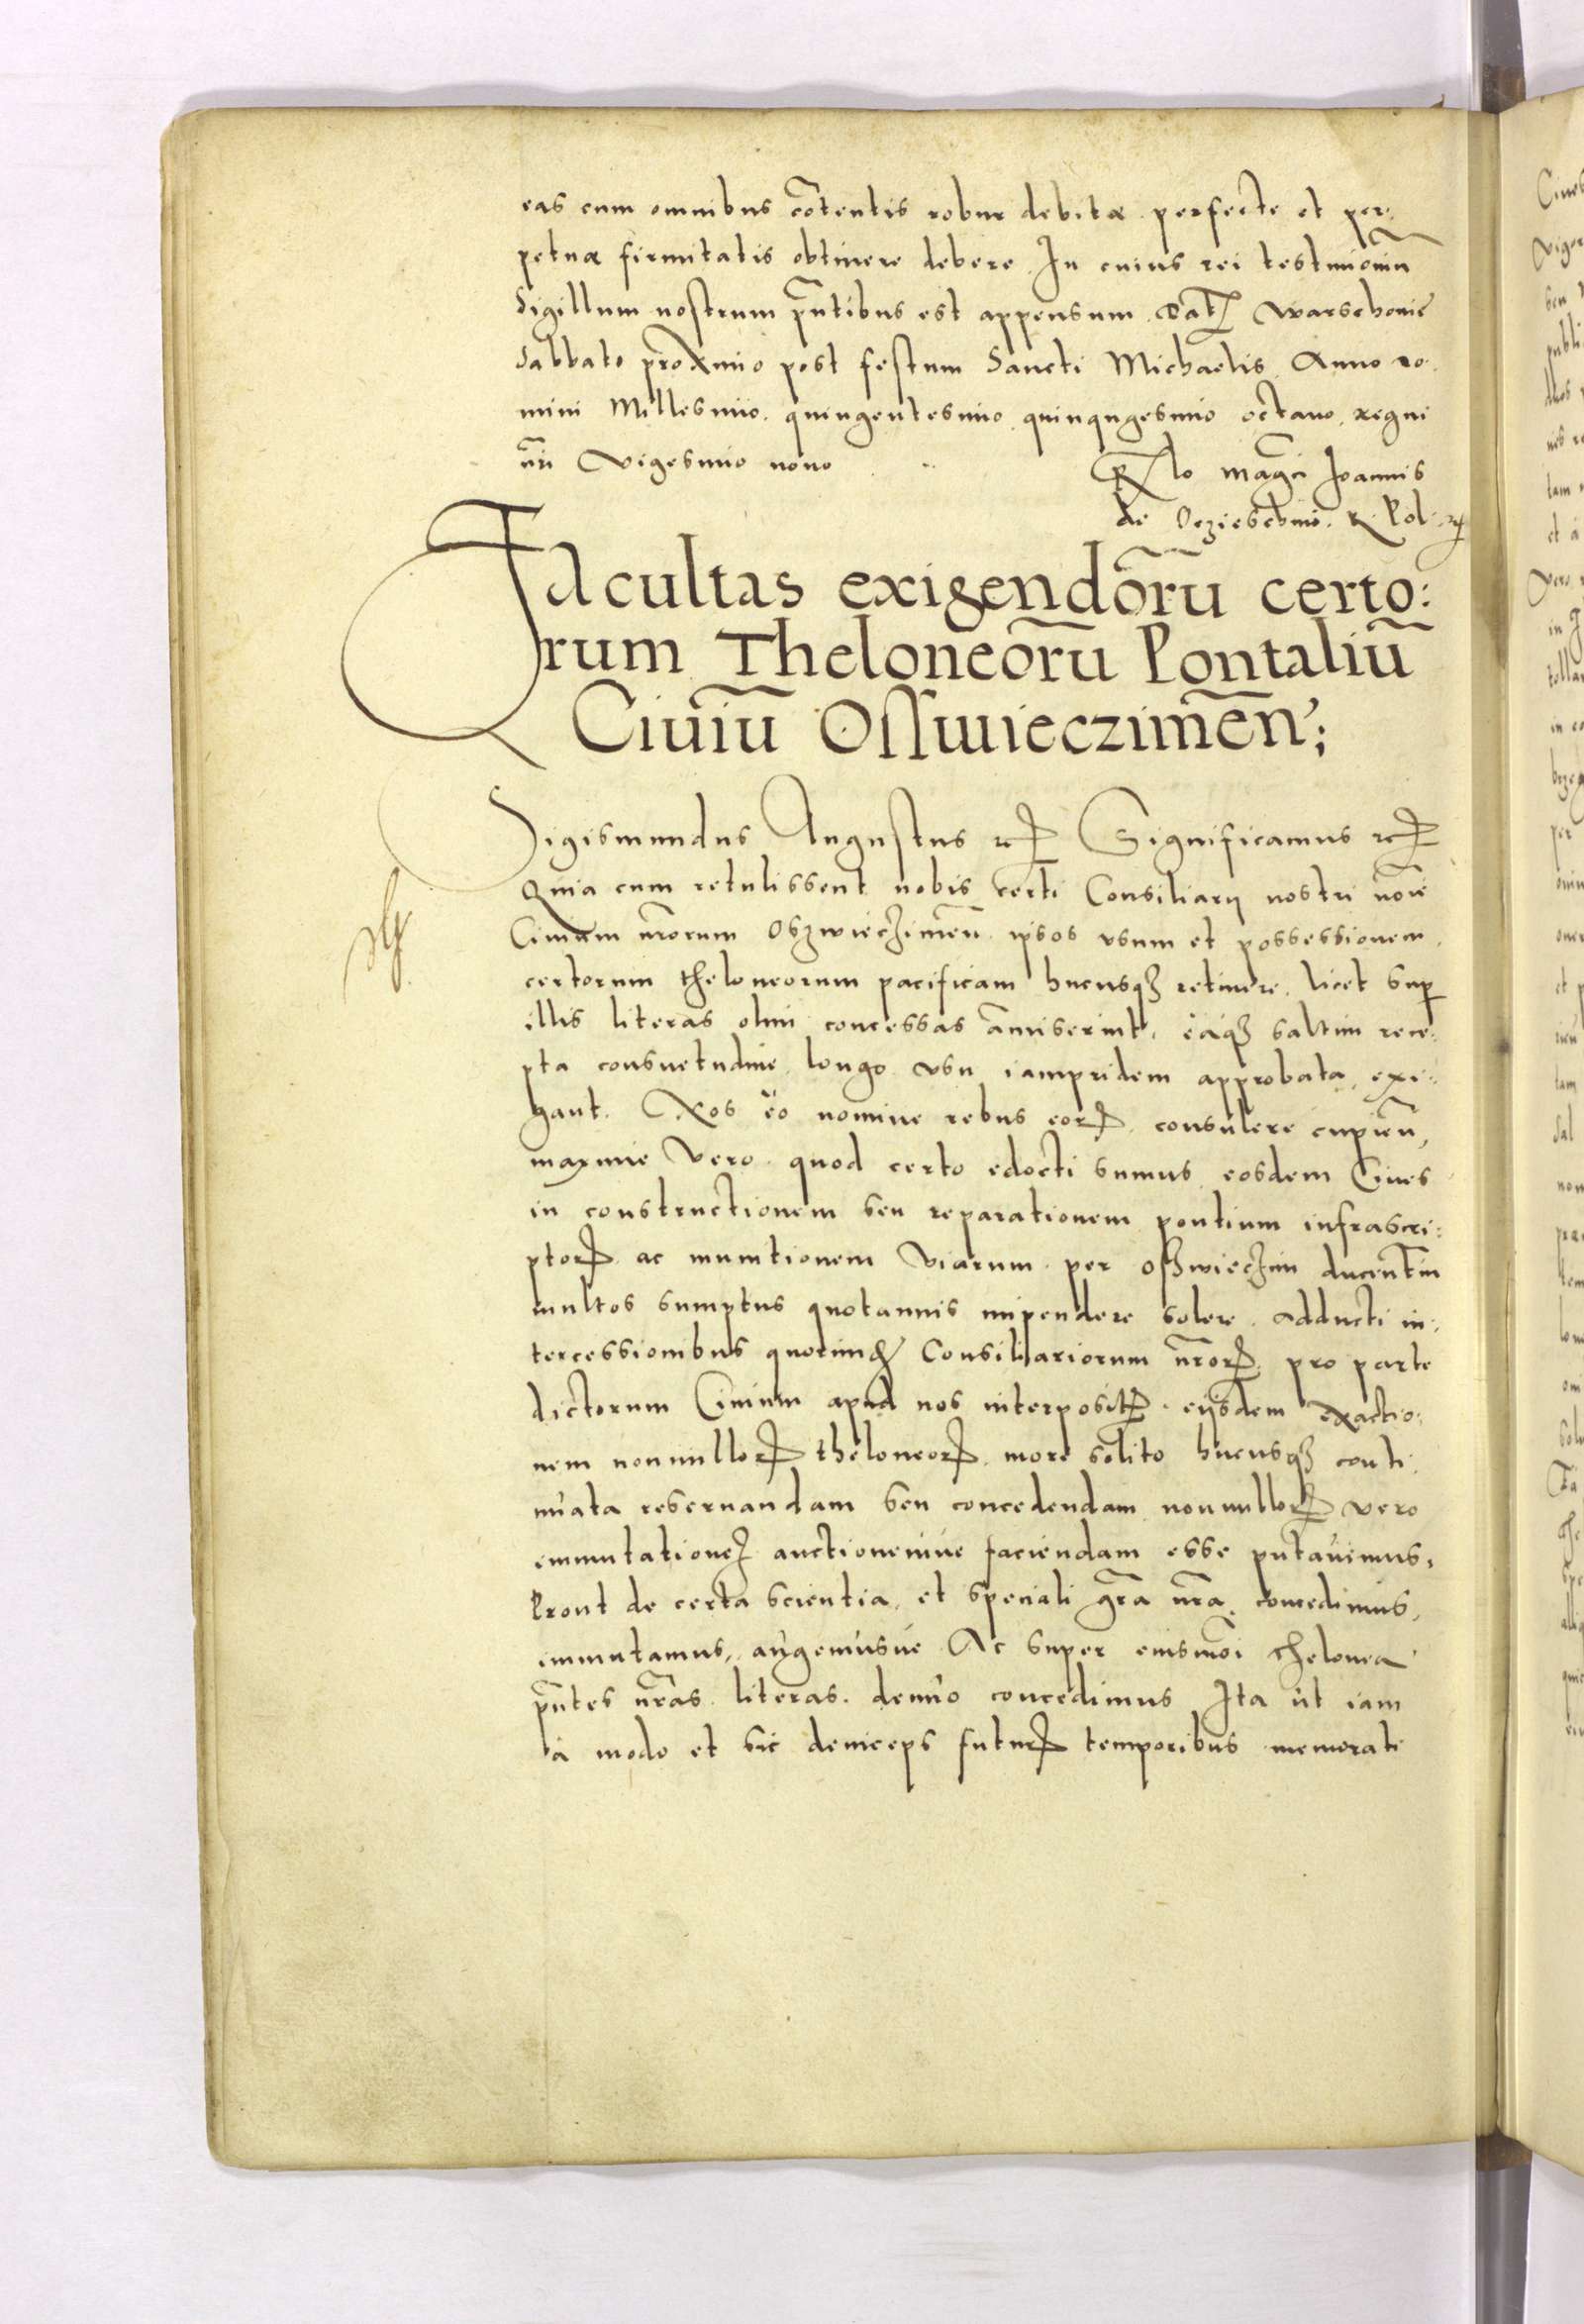 eas cum omnibus cōtentis robur debitæ perfecte et per-
petuæ firmitatis obtinere debere. In cuius rei testimoniū
Sigillum nostrum pr̄ntibus est appensum. Dat Warschouie
Sabbato proximo post festum Sancti Michaelis Anno Do-
mini Millesimo quingentesimo quinqugesimo octauo, regni
nr̄i Vigesimo nono
R̄lo Mag̃ci Joannis
de Oczieschino R. Pol.
Facultas exigendōrū certo:
rum Theloneōrū Pontaliū
Ciuiū Osswieczimēn;
Sigismundus Augustus etc Significamus etc
Quia cum retulissent nobis certi Consiliarij nostri noīe
Ciuium nr̄orum Oszwieczimeñ ipsos vsum et possessionem
certorum theloneorum pacificam hucusqȝ retinere, licet sup
illis literas olim concessas amiserint, eaqȝ saltim rece-
pta consuetudine longo vsu iampridem approbata, exi-
gant. Nos eo nomine rebus eorꝝ consulere cupieñ,
maxime Vero quod certo edocti sumus eosdem Ciues
in constructionem seu reparationem pontium infrascri:
ptorꝝ ac munitionem Viarum per Oszwieczim ducentiū
multos sumptus quotannis impendere solere. Adducti in-
tercessionibus quorundꝫ Consiliariorum nr̄orꝝ pro parte
dictorum Ciuium apud nos interpositꝭ eijsdem exactio:
nem nonnullorꝝ theloneorꝝ more solito hucusqȝ conti
nuata reseruandam seu concedendam nonnullorꝝ vero
immutationeꝫ auctionemue faciendam esse putauimus,
Prout de certa scientia, et speciali gr̄a nr̄a concedimus,
immutamus, augemusue Ac super eiusmōi thelonea
pn̄tes nr̄as literas denuo concedimus Ita ut iam
a modo et sic deinceps futurꝭ temporibus memorati